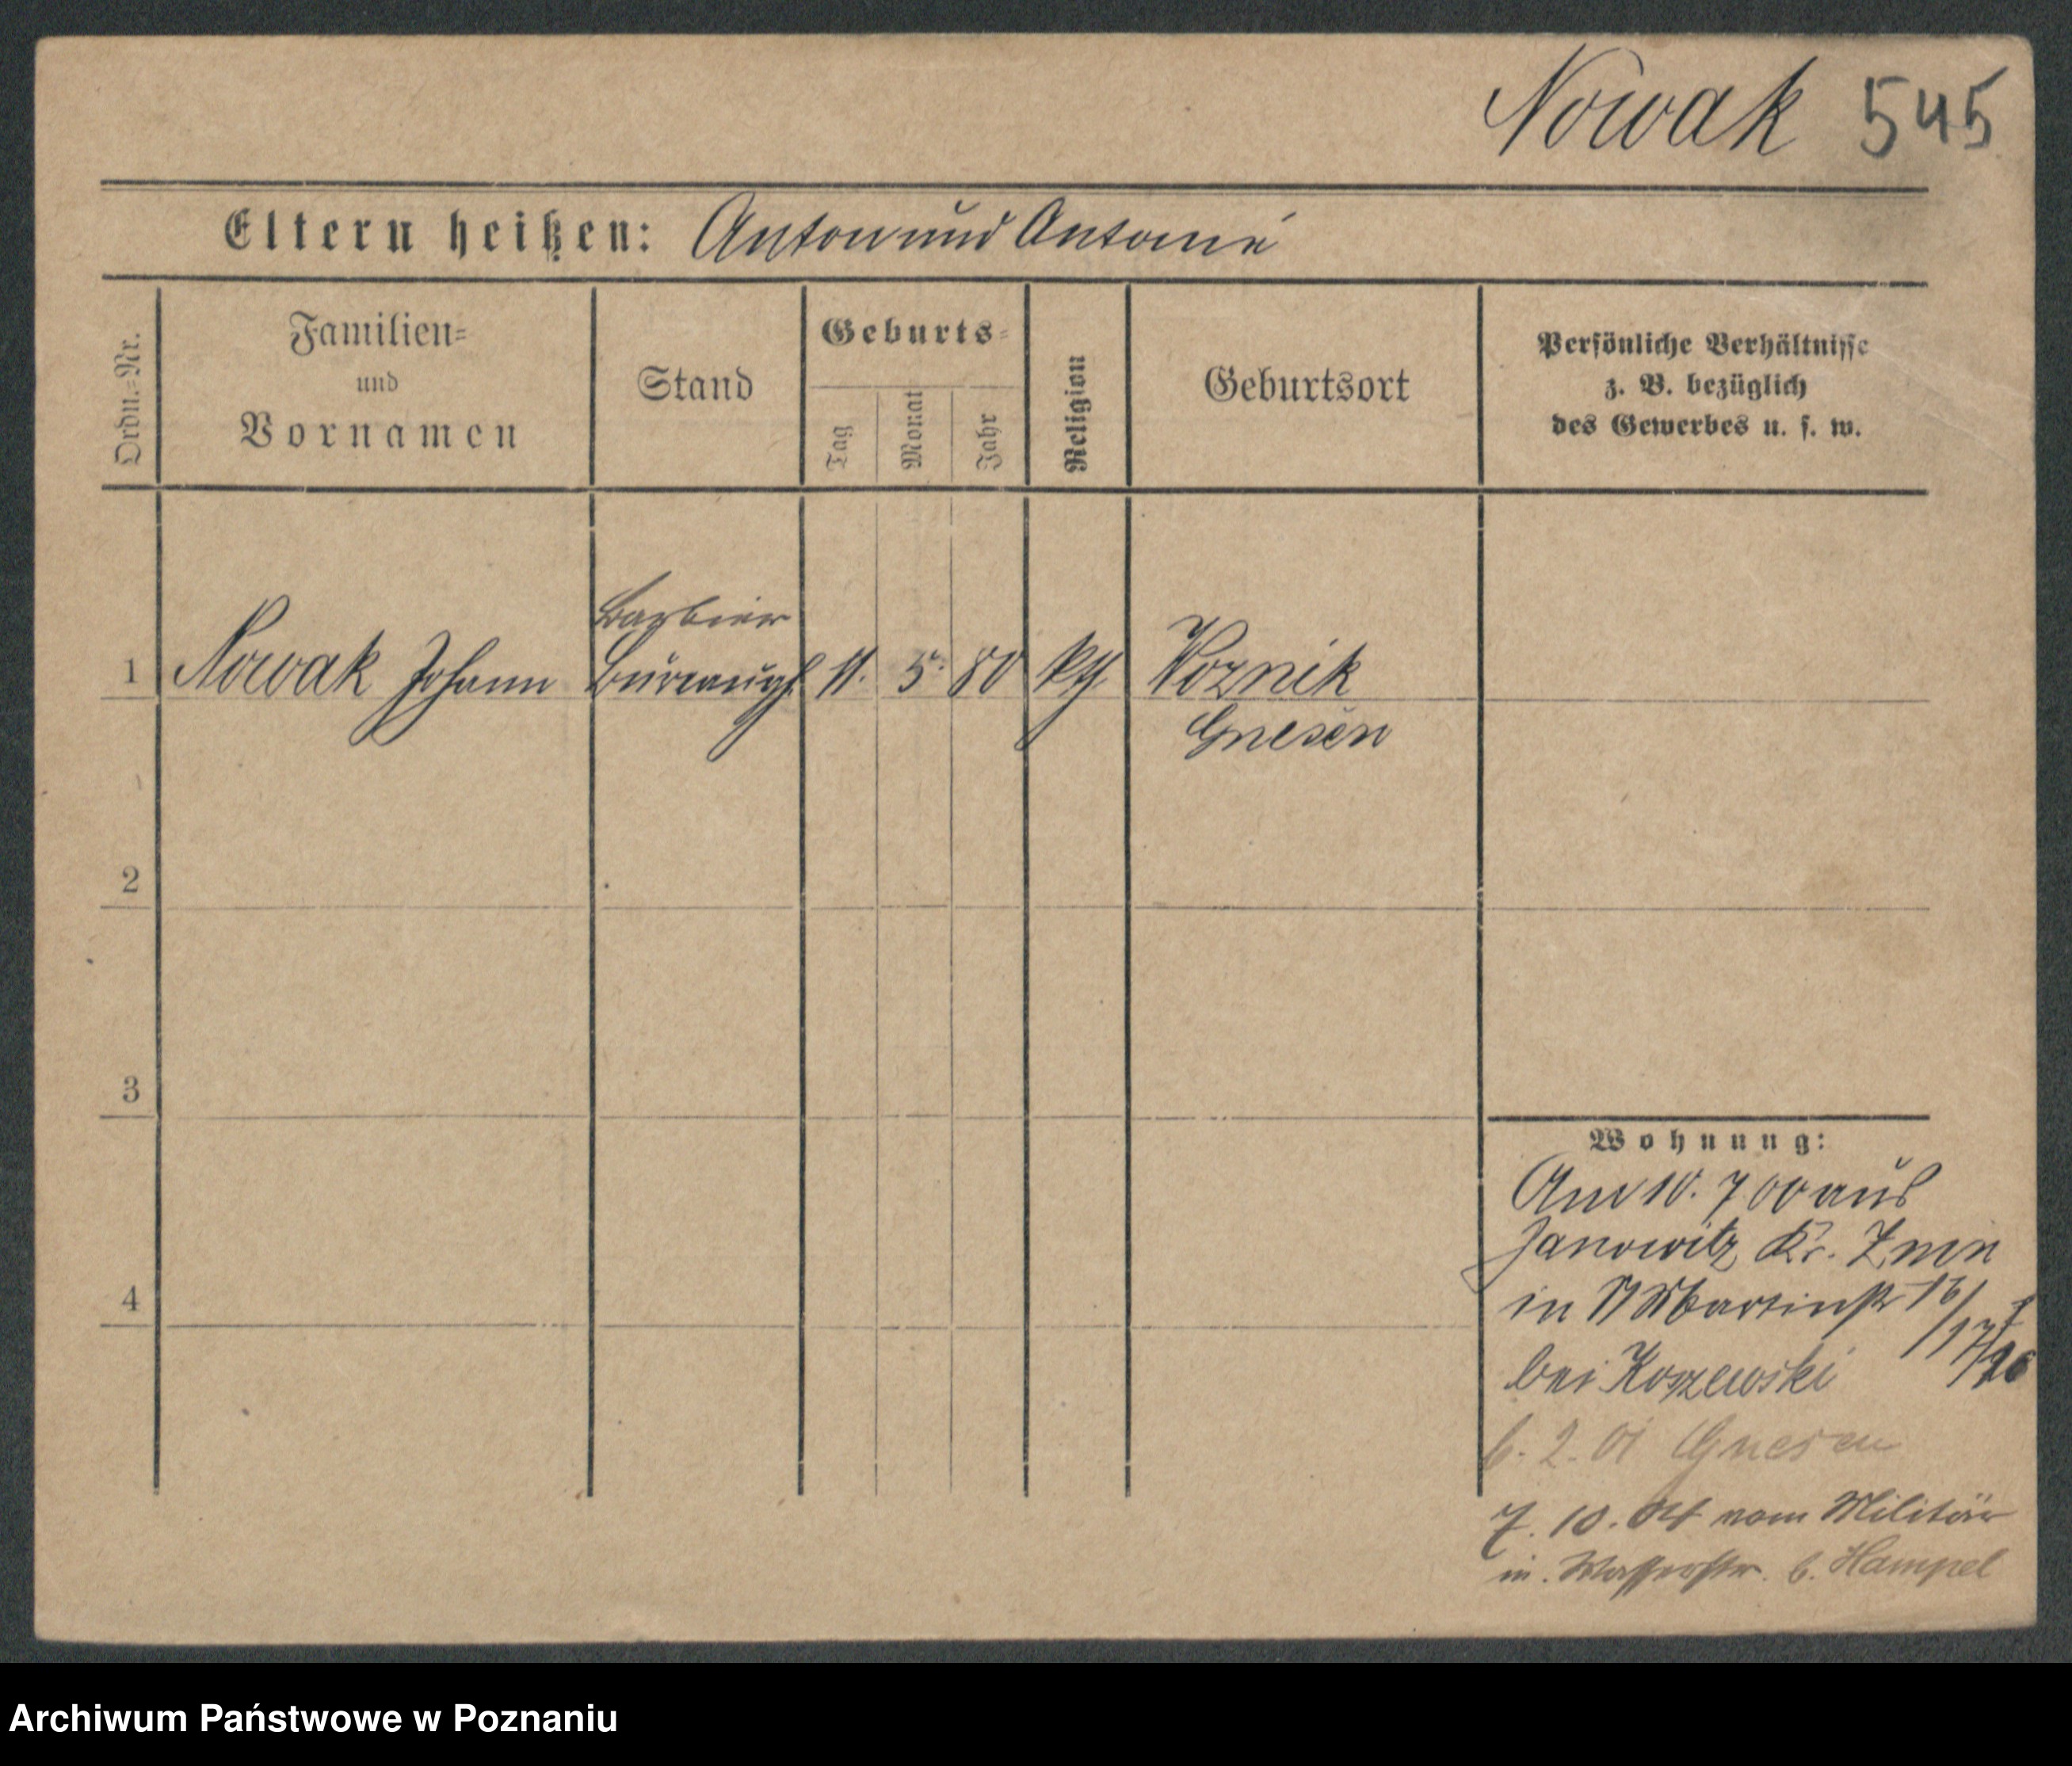 Nowak 545
Eltern heißen: Anton und Antonie
Ordn.=Nr.
Familien=
und
Vornamen
Stand
Geburts=
Tag
Monat
Jahr
Religion
Geburtsort
Persönliche Verhältnisse
z. B. bezüglich
des Gewerbes u. s. w.
Barbier
1 Nowak Johann Büreaugh. 11. 5. 80 kth. Woznik
Gnesen
2
3
4
Wohnung:
Am 10. 7 00 aus
Janowitz Kr. Znin
in St Martinstr 16/17
bei Koszewski
6. 2. 01 Gnesen
7. 10. 04 vom Militär
in. Wasserstr. b. Hampel
Archiwum Państwowe w Poznaniu